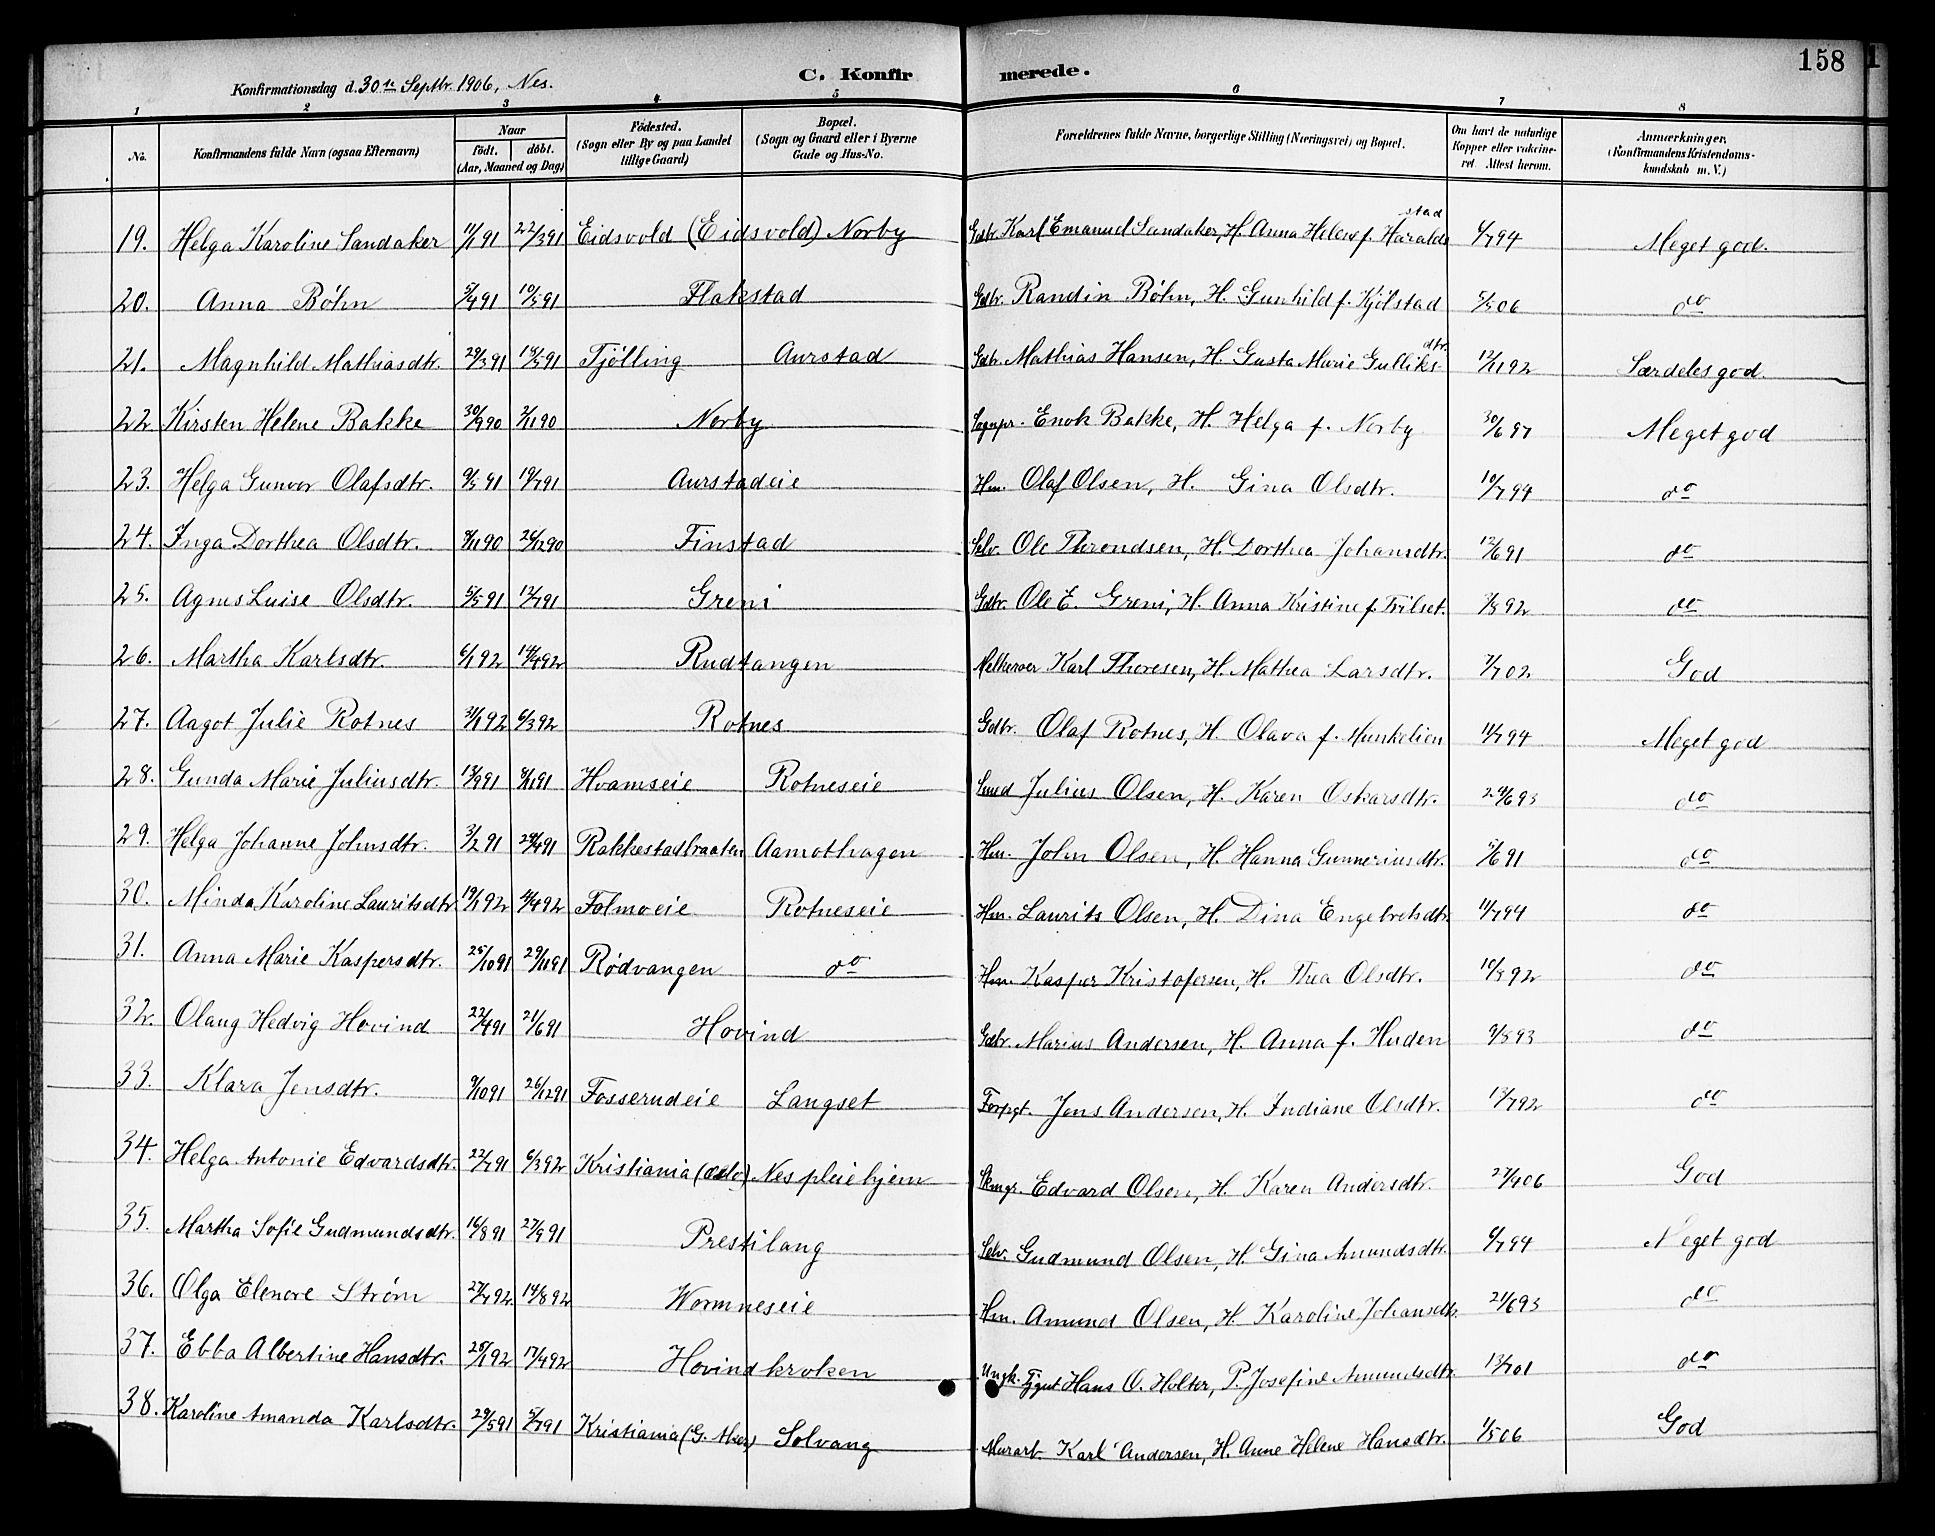 158
C. Konfirmerede.
Konfirmationsdag d. 30te Septbr. 1906, Nes.
1 2 3 4 5 6 7 8
No. Konfirmandens fulde Navn (ogsaa Efternavn) Naar født. døbt. (Aar, Maaned og Dag) Fødested. (Sogn eller By og paa Landet tillige Gaard) Bopæl. (Sogn og Gaard eller i Byerne Gade og Hus-No. Forældrenes fulde Navne, borgerlige Stilling (Næringsvei) og Bopæl. Om havt de naturlige Kopper eller vakcineret. Attest herom. Anmærkninger. (Konfirmandens Kristendomskundskab m. V.)
19. Helga Karoline Sandaker 11/1 91 22/3 91 Eidsvold (Eidsvold) Norby Gdbr. Karl Emanuel Sandaker, H. Anna Helene f. Haraldstad 6/7 94 Meget god.
20. Anna Bøhn 5/4 91 10/5 91 Flakstad Gdbr. Randin Bøhn, H. Gunhild f. Kjølstad 5/5 06 do
21. Magnhild Mathiasdtr. 29/3 91 Tjølling Aurstad Gdb. Mathias Hansen, H. Gusta Marie Gulliksdtr. 12/11 92 Særdeles god.
22 Kirsten Helene Bakke 30/9 90 2/11 90 Norby Sognpr. Enok Bakke, H. Helga f. Norby 30/6 97 Meget god
23. Helga Gunvor Olafsdtr. 9/5 91 19/7 91 Aurstadeie Hm. Olaf Olsen, H. Gina Olsdtr. 10/7 94 do
24. Inga Dorthea Olsdtr. 9/11 90 26/12 90 Finstad Selv. Ole Throndsen, H. Dorthea Johansdtr. 12/6 91 do
25. Agnes Luise Olsdtr. 5/5 91 12/7 91 Greni Gdbr. Ole E. Greni, H. Anna Kristine f. Trilset. 7/8 92 do
26. Martha Karlsdtr. 6/1 92 14/4 92 Rudtangen Karl Thoresen, H. Mathea Larsdtr. 7/7 02 God
27. Aagot Julie Rotnes 31/1 92 6/3 92 Rotnes Gdbr. Olaf Rotnes, H. Olava f. Munkelien 11/7 94 Meget god
28. Gunda Marie Juliusdtr. 13/9 91 8/11 91 Hvamseie Rotneseie Smed Julius Olsen, H. Karen Oskarsdtr. 24/6 93 do
29. Helga Johanne Johnsdtr. 3/2 91 29/4 91 Rakkestadbraaten Aamothagen Hm. John Olsen, H. Hanna Gunneriusdtr. 5/6 91 do
30. Minda Karoline Lauritsdtr. 19/1 92 4/4 92 Folmoeie Rotneseie Hm. Laurits Olsen, H. Dina Engebretsdtr. 11/7 94 do
31. Anna Marie Kaspersdtr. 25/10 91 29/11 91 Rødvangen do Hm. Kasper Kristofersen, H. Thea Olsdtr. 10/8 92 do
32. Olaug Hedvig Hovind 22/4 91 21/6 91 Hovind Gdbr. Marius Andersen, H. Anna f. Huden 9/5 93 do
33. Klara Jensdtr. 9/10 91 26/12 91 Fosserudeie Langset Forpgt. Jens Andersen, H. Indiane Olsdtr. 13/7 92 do
34. Helga Antonie Edvardsdtr. 22/7 91 6/3 92 Kristiania (Oslo) Nes pleiehjem Skmgr. Edvard Olsen, H. Karen Andersdtr. 27/4 06 God
35. Martha Sofie Gudmundsdtr. 16/8 91 27/9 91 Prestilang Selv. Gudmund Olsen, H. Gina Amundsdtr. 6/7 94 Meget god
36. Olga Elenore Strøm 27/7 92 14/8 92 Wormneseie Hm. Amund Olsen, H. Karoline Johansdtr. 21/6 93 do
37. Ebba Albertine Hansdtr. 25/1 92 17/4 92 Hovindkroken Ungk. Tjgut Hans O. Holter, P. Josefine Amundsdtr. 13/7 01 do
38. Karoline Amanda Karlsdtr. 29/5 91 5/7 91 Kristiania (G. Aker) Solvang Murarb. Karl Andersen, H. Anne Helene Hansdtr. 1/5 06 God